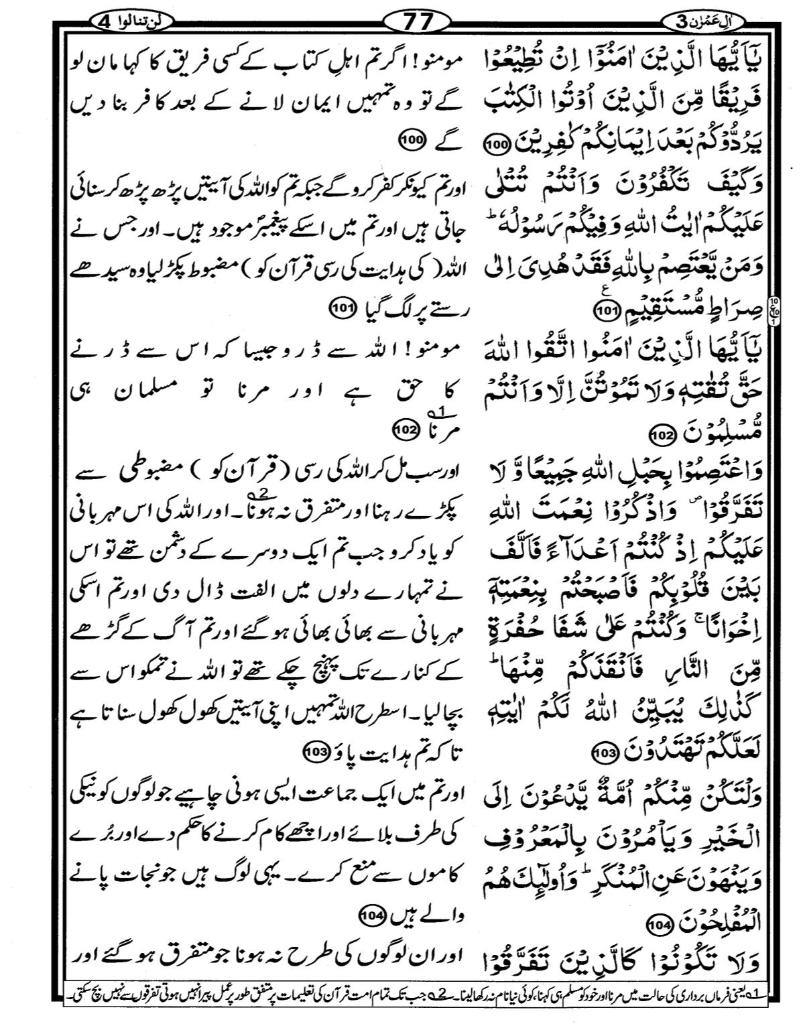 اٰلِ عِمْرٰن 3
77
لن تنالوا 4
يٰٓاَيُّهَا الَّذِيْنَ اٰمَنُوْٓا اِنْ تُطِيْعُوْا
فَرِيْقًا مِّنَ الَّذِيْنَ اُوْتُوا الْكِتٰبَ
يَرُدُّوْكُمْ بَعْدَ اِيْمَانِكُمْ كٰفِرِيْنَ 100
وَكَيْفَ تَكْفُرُوْنَ وَاَنْتُمْ تُتْلٰى
عَلَيْكُمْ اٰيٰتُ اللّٰهِ وَفِيْكُمْ رَسُوْلُهٗ ؕ
وَمَنْ يَّعْتَصِمْ بِاللّٰهِ فَقَدْ هُدِىَ اِلٰى
صِرَاطٍ مُّسْتَقِيْمٍ 101 ع
يٰٓاَيُّهَا الَّذِيْنَ اٰمَنُوا اتَّقُوا اللّٰهَ
حَقَّ تُقٰتِهٖ وَلَا تَمُوْتُنَّ اِلَّا وَاَنْتُمْ
مُّسْلِمُوْنَ 102
وَاعْتَصِمُوْا بِحَبْلِ اللّٰهِ جَمِيْعًا وَّ لَا
تَفَرَّقُوْا ۪ وَاذْكُرُوْا نِعْمَتَ اللّٰهِ
عَلَيْكُمْ اِذْ كُنْتُمْ اَعْدَآءً فَاَلَّفَ
بَيْنَ قُلُوْبِكُمْ فَاَصْبَحْتُمْ بِنِعْمَتِهٖٓ
اِخْوَانًا ۚ وَكُنْتُمْ عَلٰى شَفَا حُفْرَةٍ
مِّنَ النَّارِ فَاَنْقَذَكُمْ مِّنْهَا ؕ
كَذٰلِكَ يُبَيِّنُ اللّٰهُ لَكُمْ اٰيٰتِهٖ
لَعَلَّكُمْ تَهْتَدُوْنَ 103
وَلْتَكُنْ مِّنْكُمْ اُمَّةٌ يَّدْعُوْنَ اِلَى
الْخَيْرِ وَيَاْمُرُوْنَ بِالْمَعْرُوْفِ
وَيَنْهَوْنَ عَنِ الْمُنْكَرِ ؕ وَاُولٰٓئِكَ هُمُ
الْمُفْلِحُوْنَ 104
وَلَا تَكُوْنُوْا كَالَّذِيْنَ تَفَرَّقُوْا
مومنو! اگر تم اہلِ کتاب کے کسی فریق کا کہا مان لو
گے تو وہ تمہیں ایمان لانے کے بعد کافر بنا دیں
گے 100
اور تم کیونکر کفر کرو گے جبکہ تم کو اللہ کی آیتیں پڑھ پڑھ کر سنائی
جاتی ہیں اور تم میں اسکے پیغمبرؐ موجود ہیں۔ اور جس نے
اللہ (کی ہدایت کی رسی قرآن کو) مضبوط پکڑ لیا وہ سیدھے
رستے پر لگ گیا 101
مومنو! اللہ سے ڈرو جیسا کہ اس سے ڈرنے
کا حق ہے اور مرنا تو مسلمان ہی
مرنا 1؎ 102
اور سب مل کر اللہ کی رسی (قرآن کو) مضبوطی سے
پکڑے رہنا اور متفرق نہ ہونا 2؎۔ اور اللہ کی اس مہربانی
کو یاد کرو جب تم ایک دوسرے کے دشمن تھے تو اس
نے تمہارے دلوں میں الفت ڈال دی اور تم اسکی
مہربانی سے بھائی بھائی ہو گئے اور تم آگ کے گڑھے
کے کنارے تک پہنچ چکے تھے تو اللہ نے تمکو اس سے
بچا لیا۔ اسطرح اللہ تمہیں اپنی آیتیں کھول کھول سناتا ہے
تا کہ تم ہدایت پاؤ 103
اور تم میں ایک جماعت ایسی ہونی چاہیے جو لوگوں کو نیکی
کی طرف بلائے اور اچھے کام کرنے کا حکم دے اور بُرے
کاموں سے منع کرے۔ یہی لوگ ہیں جو نجات پانے
والے ہیں 104
اور ان لوگوں کی طرح نہ ہونا جو متفرق ہو گئے اور
1؎ یعنی فرماں برداری کی حالت میں مرنا اور خود کو مسلم ہی کہنا، کوئی نیا نام نہ رکھا لینا۔ 2؎ جب تک تمام امت قرآن کی تعلیمات پر متفق طور پر عمل پیرا نہیں ہوتی تفرقوں سے نہیں بچ سکتی۔